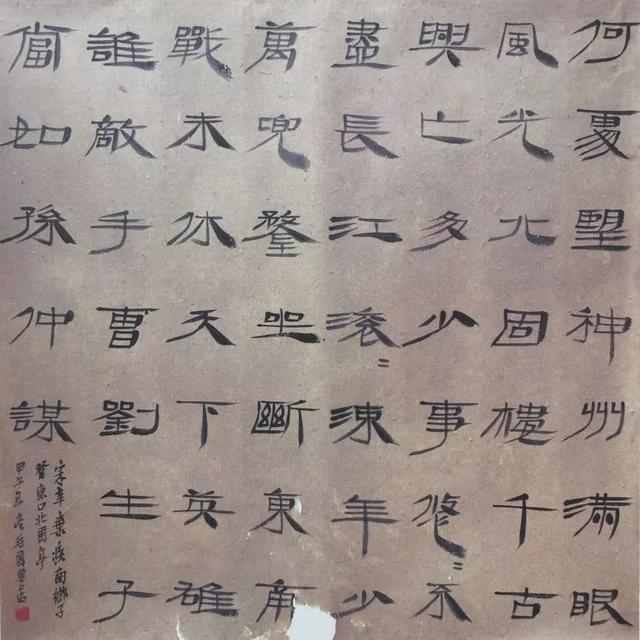 何處望神州滿眼
風光北固樓千古
興亡多少事悠〻不
盡長江滾〻流年少
萬兜鍪坐斷東南
戰未休天下英雄
誰敵手曹劉生子
當如孫仲謀
宋辛棄疾南鄉子
登京口北固亭
甲午年毛國典